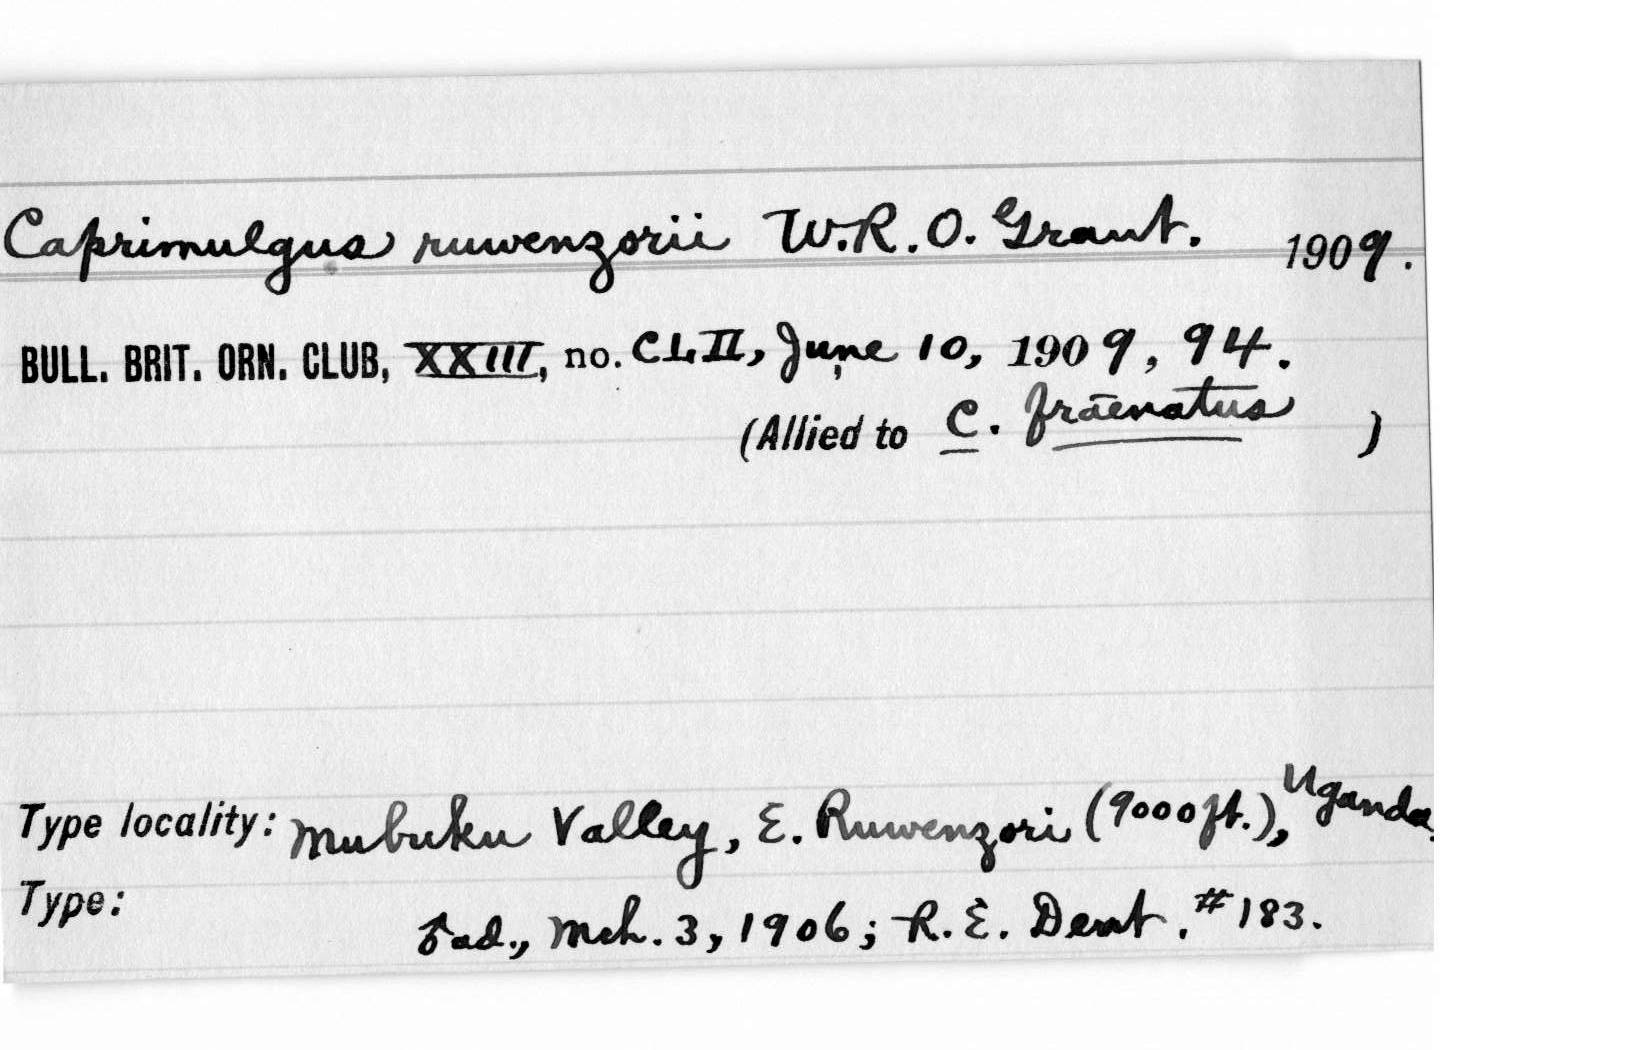 Caprimulgus ruwenzorii W.R.O. Grant. 1909.
BULL. BRIT. ORN. CLUB, XXIII, no. CLII, June 10, 1909, 94.
(Allied to C. fraenatus )
Type locality: Mubuku Valley, E. Ruwenzori (9000 ft.), Uganda.
Type:
ad., Mch. 3, 1906; R. E. Dent. #183.